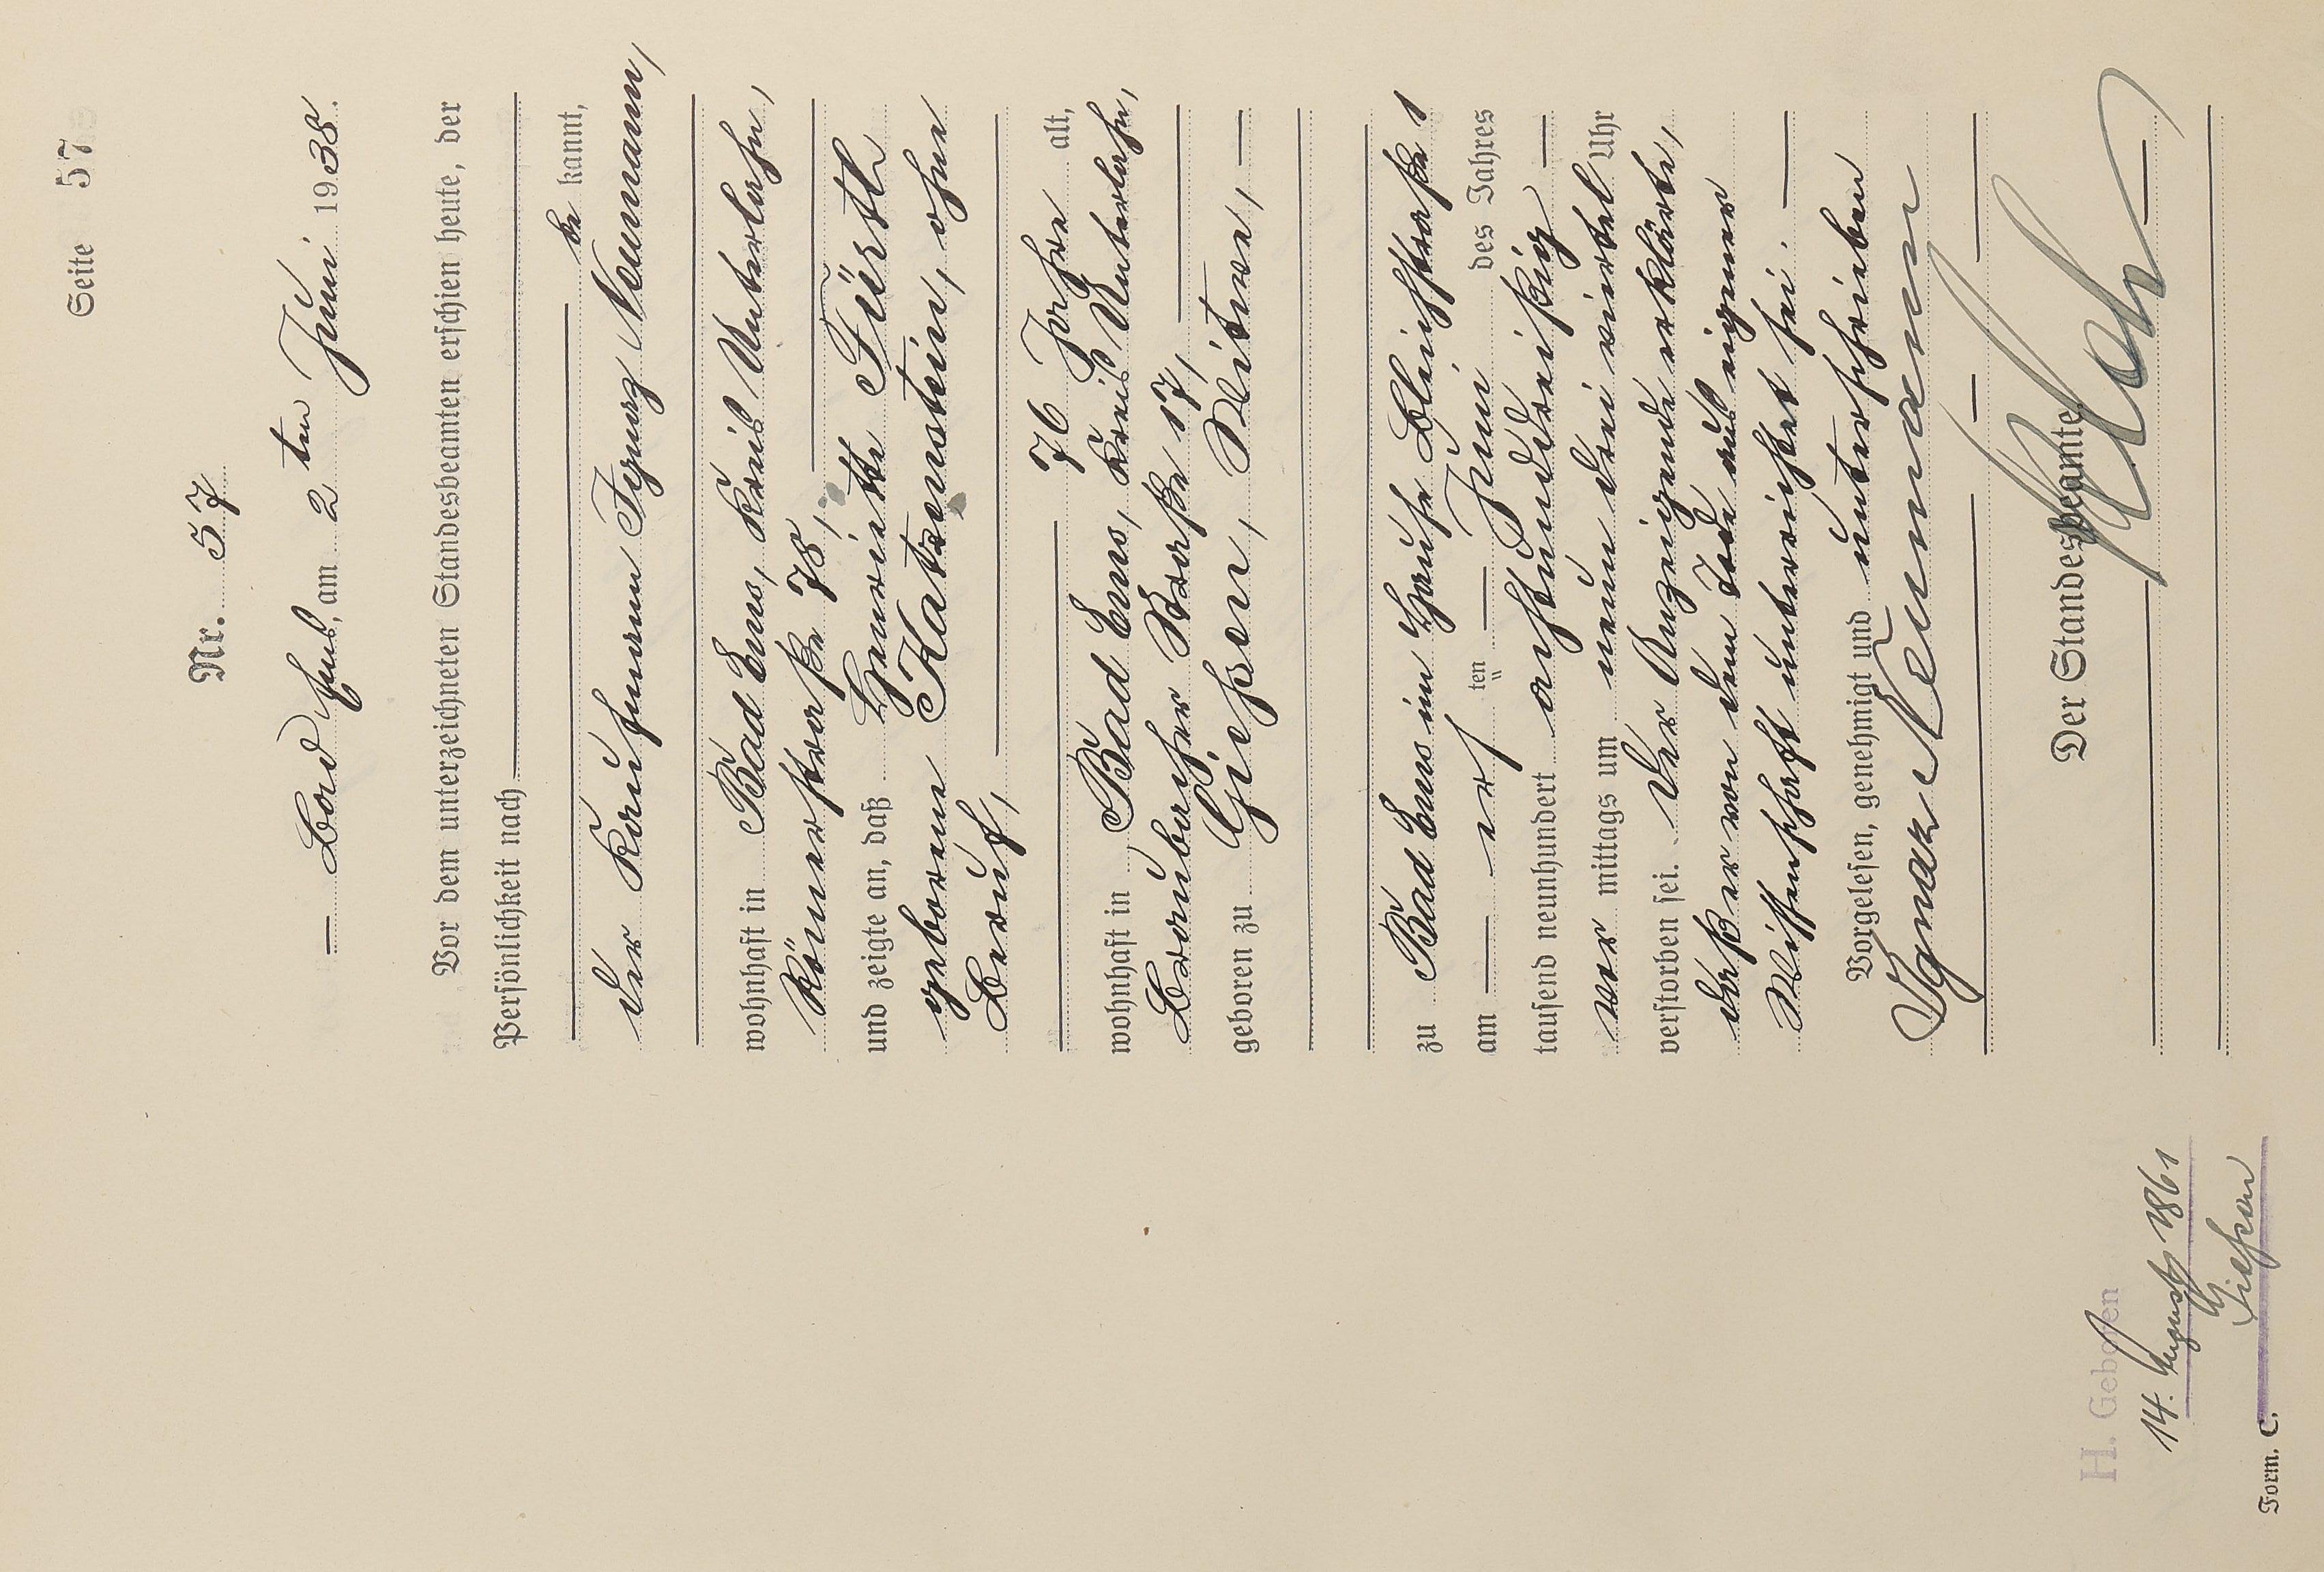 Seite 57
Nr. 57
— Bad Ems, am 2 ten Juni 1938.
Vor dem unterzeichneten Standesbeamten erschien heute, der
Persönlichkeit nach
be kannt,
der Kaufmann Ignaz Neumann,
wohnhaft in Bad Ems, Kreis Unterlahn,
Römerstraße 78,
und zeigte an, daß Henriette Fürth
geborene Katzenstein, ohne
Beruf,
76 Jahre alt,
wohnhaft in Bad Ems, Kreis Unterlahn,
Braubacher Straße 17,
geboren zu Gießen, Witwe, —
zu Bad Ems im Hause Bleichstraße 1
am — ersten — Juni des Jahres
tausend neunhundert achtunddreißig —
vor mittags um neun dreiviertel Uhr
verstorben sei. Der Anzeigende erklärte,
daß er von dem Tode aus eigener
Wissenschaft unterrichtet sei. —
Vorgelesen, genehmigt und unterschrieben
Ignaz Neumann
Der Standesbeamte
H. Geboren
14. August 1861
Gießen
Form. C.